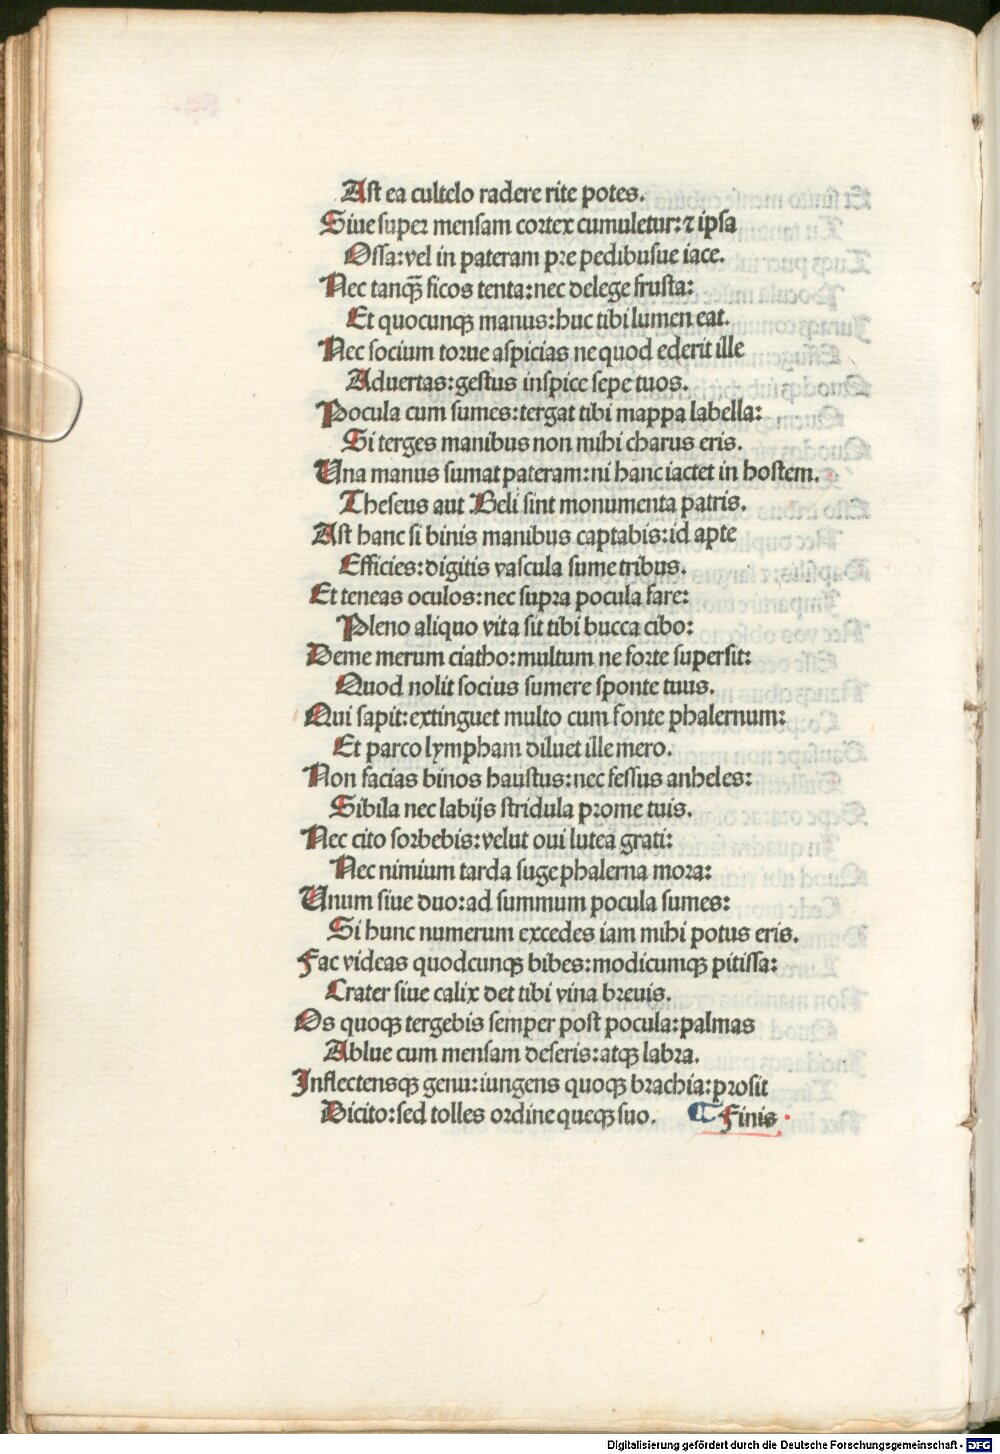 Ast ea cultelo radere rite potes.
Siue super mensam cortex cumuletur: ⁊ ipsa
Ossa: vel in pateram pre pedibusue iace.
Nec tanqꝫ̃ ficos tenta: nec delege frusta:
Et quocunqꝫ manus: huc tibi lumen eat.
Nec socium torue aspicias ne quod ederit ille
Aduertas: gestus inspice sepe tuos.
Pocula cum sumes: tergat tibi mappa labella:
Si terges manibus non mihi charus eris.
Una manus sumat pateram: ni hanc iactet in hostem.
Theseus aut Beli sint monumenta patris.
Ast hanc si binis manibus captabis: id apte
Efficies: digitis vascula sume tribus.
Et teneas oculos: nec supra pocula fare:
Pleno aliquo vita sit tibi bucca cibo:
Deme merum ciatho: multum ne forte supersit:
Quod nolit socius sumere sponte tuus.
Qui sapit: extinguet multo cum fonte phalernum:
Et parco lympham diluet ille mero.
Non facias binos haustus: nec fessus anheles:
Sibila nec labijs stridula prome tuis.
Nec cito sorbebis: velut oui lutea grati:
Nec nimium tarda suge phalerna mora:
Unum siue duo: ad summum pocula sumes:
Si hunc numerum excedes iam mihi potus eris.
Fac videas quodcunqꝫ bibes: modicumqꝫ pitissa:
Crater siue calix det tibi vina breuis.
Os quoqꝫ tergebis semper post pocula: palmas
Ablue cum mensam deseris: atqꝫ labra.
Inflectensqꝫ genu: iungens quoqꝫ brachia: prosit
Dicito: sed tolles ordine queqꝫ suo. ¶ Finis
Digitalisierung gefördert durch die Deutsche Forschungsgemeinschaft - DFG